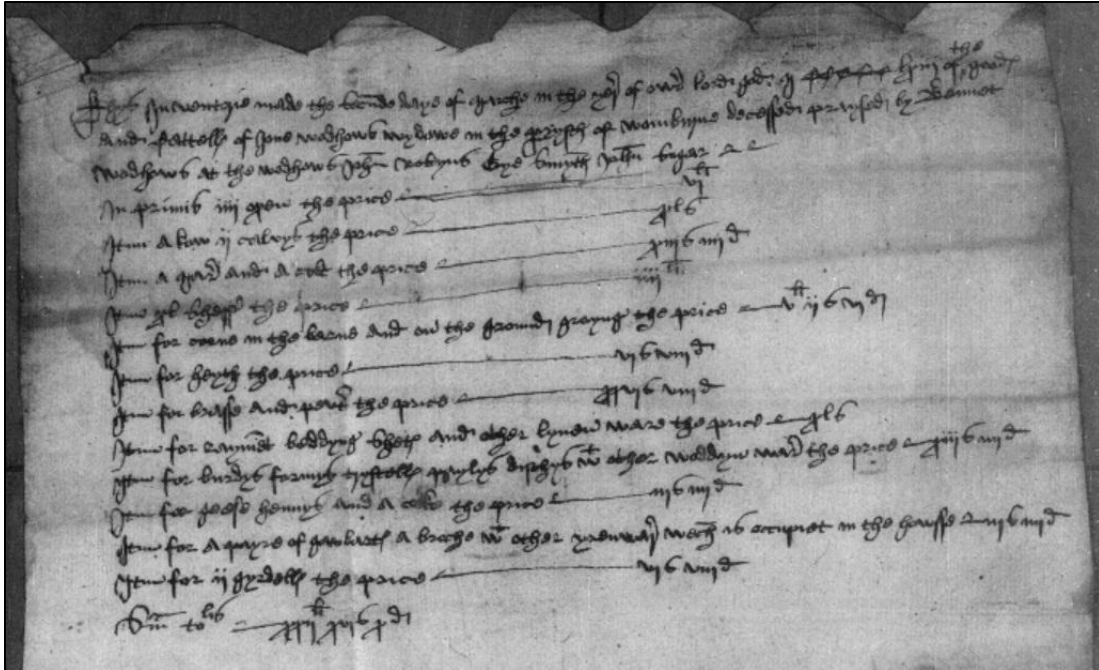 Thys Inventorie made the second daye of Marche in the yere of owr lord god the
and cattells of Jone wodhows wydowe in the parysch of womburne decessed praysed by Bennet
wodhows at the wodhows John Robyns Gye Smyth John
In primis iiii oxen the price vi li
Itm a kow ii calvys the price xls
Itm a mare and a colt the price xiiis iiiid
Itm xl shepe the price iiii li
Itm for corne in the barne and on the ground groyng the price v li iis vid
Itm for heyth the price vis viiid
Itm for brasse and pewter the price xxvis viiid
Itm for rayment beddyng shets and other lynen ware the price xls
Itm for burdys formys payles disshys wt other wodden ware the price xiiis iiiid
Itm for geese hennys and a coke the price iiis iiiid
Itm for a payre of gawbarts a broche wt other yrenware wech is occupiet in the howsse iiis iiiid
Itm for ii gyrdells the price vis viiid
Sm tolis xxii li xvis xd